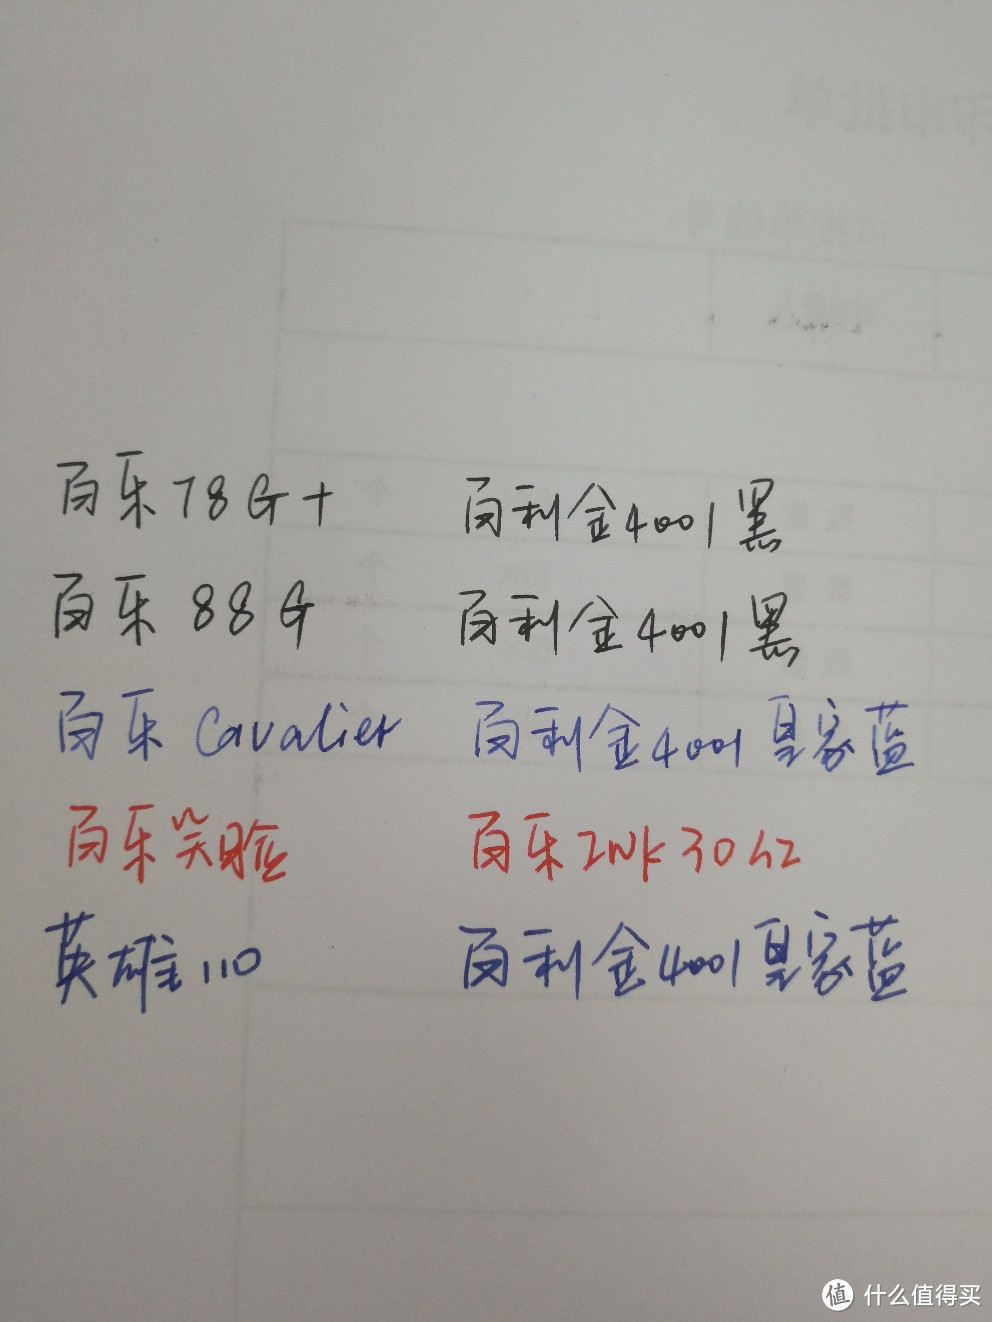 审批单
百乐78G+ 百利金4001黑
百乐 88G 百利金4001黑
百乐 Cavalier 百利金4001 皇家蓝
百乐笑脸 百乐INK 30
英雄110 百利金4001皇家蓝
值 什么值得买